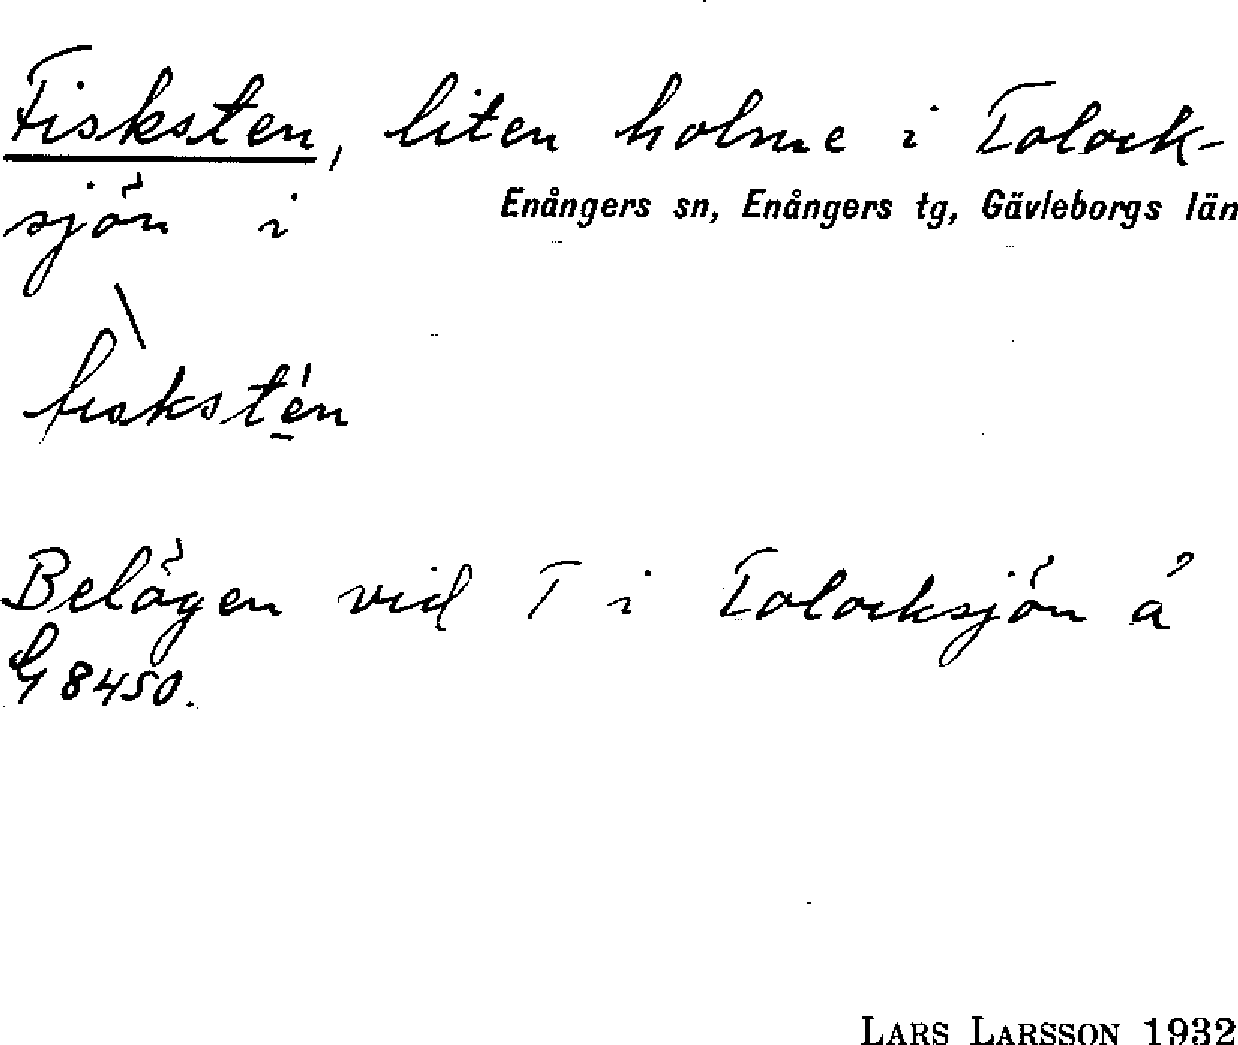 Fisksten, liten holme i Tolock-
sjön i Enångers sn, Enångers tg, Gävleborgs län
fisksten
Belägen vid T i Tolocksjön å
G 8450.
LARS LARSSON 1932